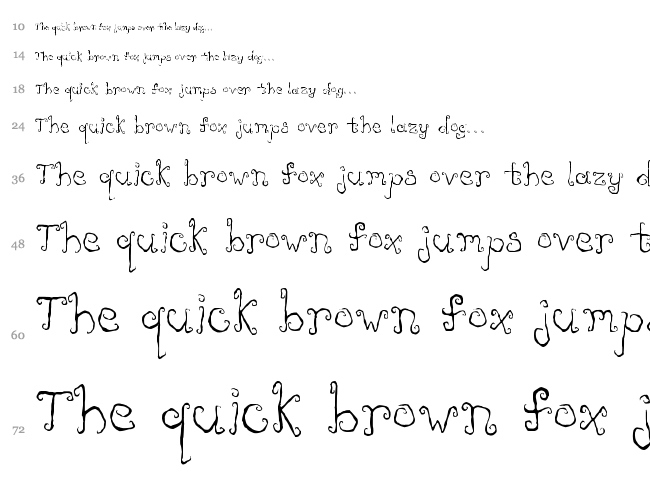 10 The quick brown fox jumps over the lazy dog...
14 The quick brown fox jumps over the lazy dog...
18 The quick brown fox jumps over the lazy dog...
24 The quick brown fox jumps over the lazy dog...
36 The quick brown fox jumps over the lazy d
48 The quick brown fox jumps over t
60 The quick brown fox jumps
72 The quick brown fox j